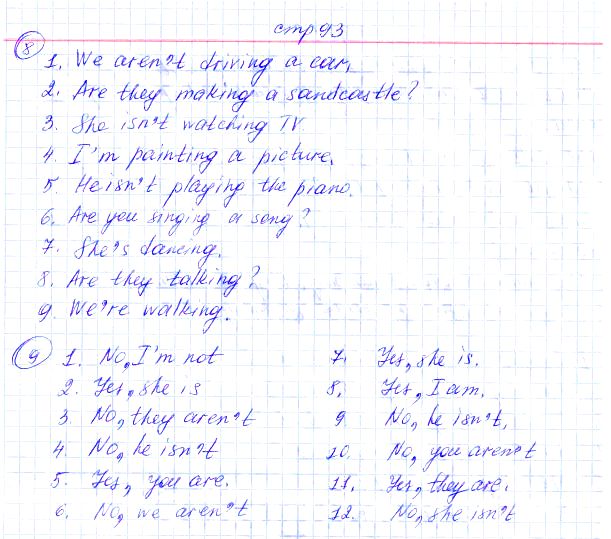 стр 93
8
1. We aren't driving a car.
2. Are they making a sandcastle?
3. She isn't watching TV
4. I'm painting a picture.
5. He isn't playing the piano.
6. Are you singing a song?
7. She's dancing.
8. Are they talking?
9. We're walking.
9
1. No, I'm not
2. Yes, she is
3. No, they aren't
4. No, he isn't
5. Yes, you are.
6. No, we aren't
7. Yes, she is.
8. Yes, I am.
9. No, he isn't.
10. No, you aren't
11. Yes, they are.
12. No, she isn't